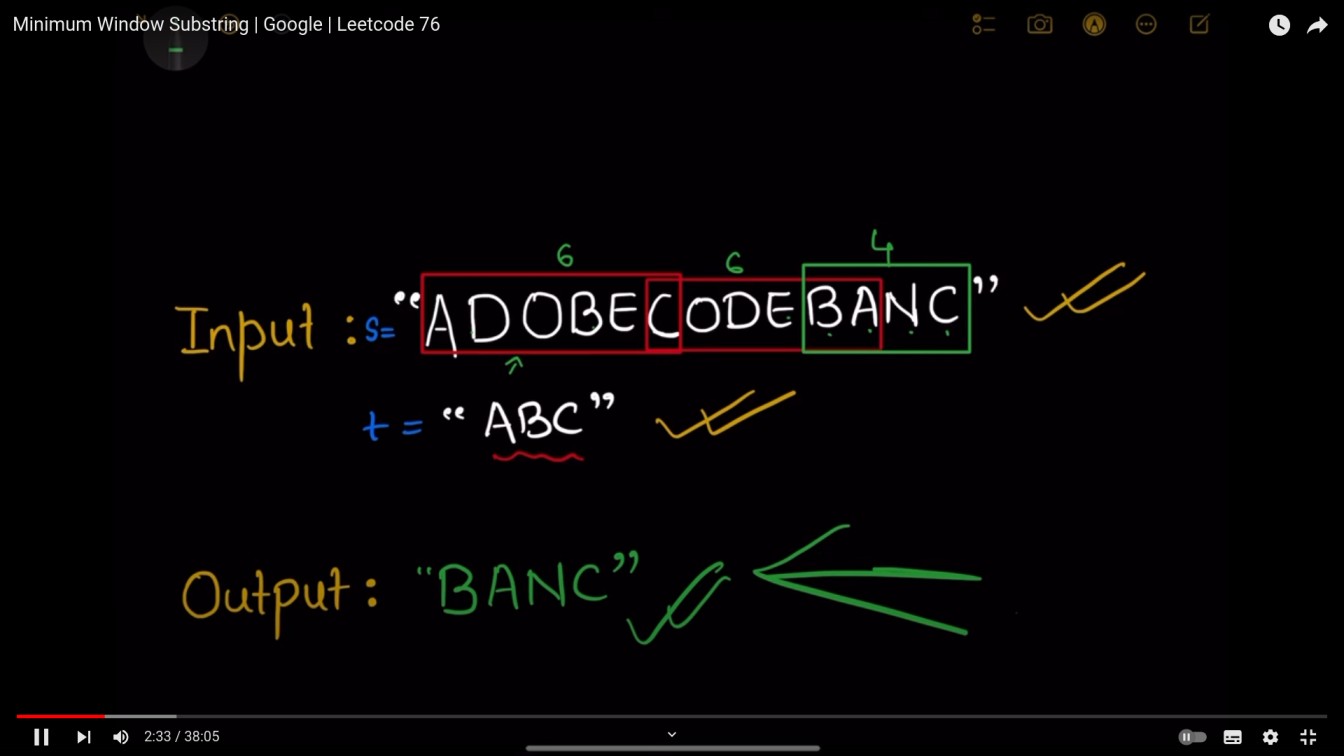 Minimum Window Substring | Google | Leetcode 76
6 6 4
Input : s= "ADOBECODEBANC"
t = "ABC"
Output : "BANC"
2:33 / 38:05